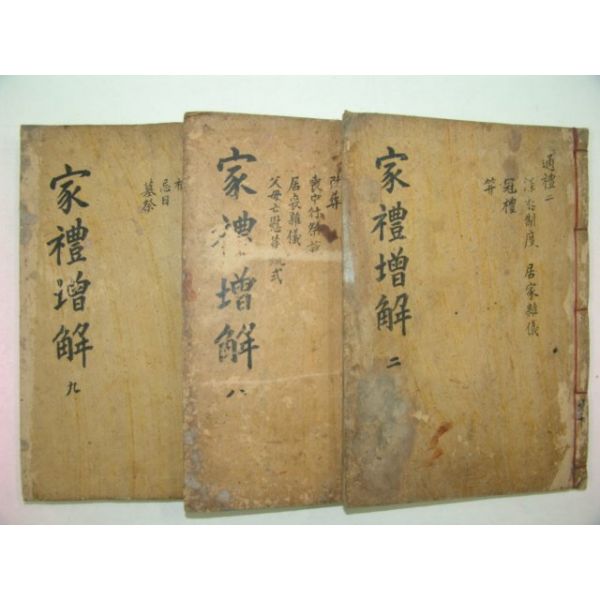 通禮二
深衣制度 居家雜儀
冠禮
笄
家禮增解
二
居喪雜儀
父母亡慰答疏式
家禮增解
八
忌日
墓祭
家禮增解
九